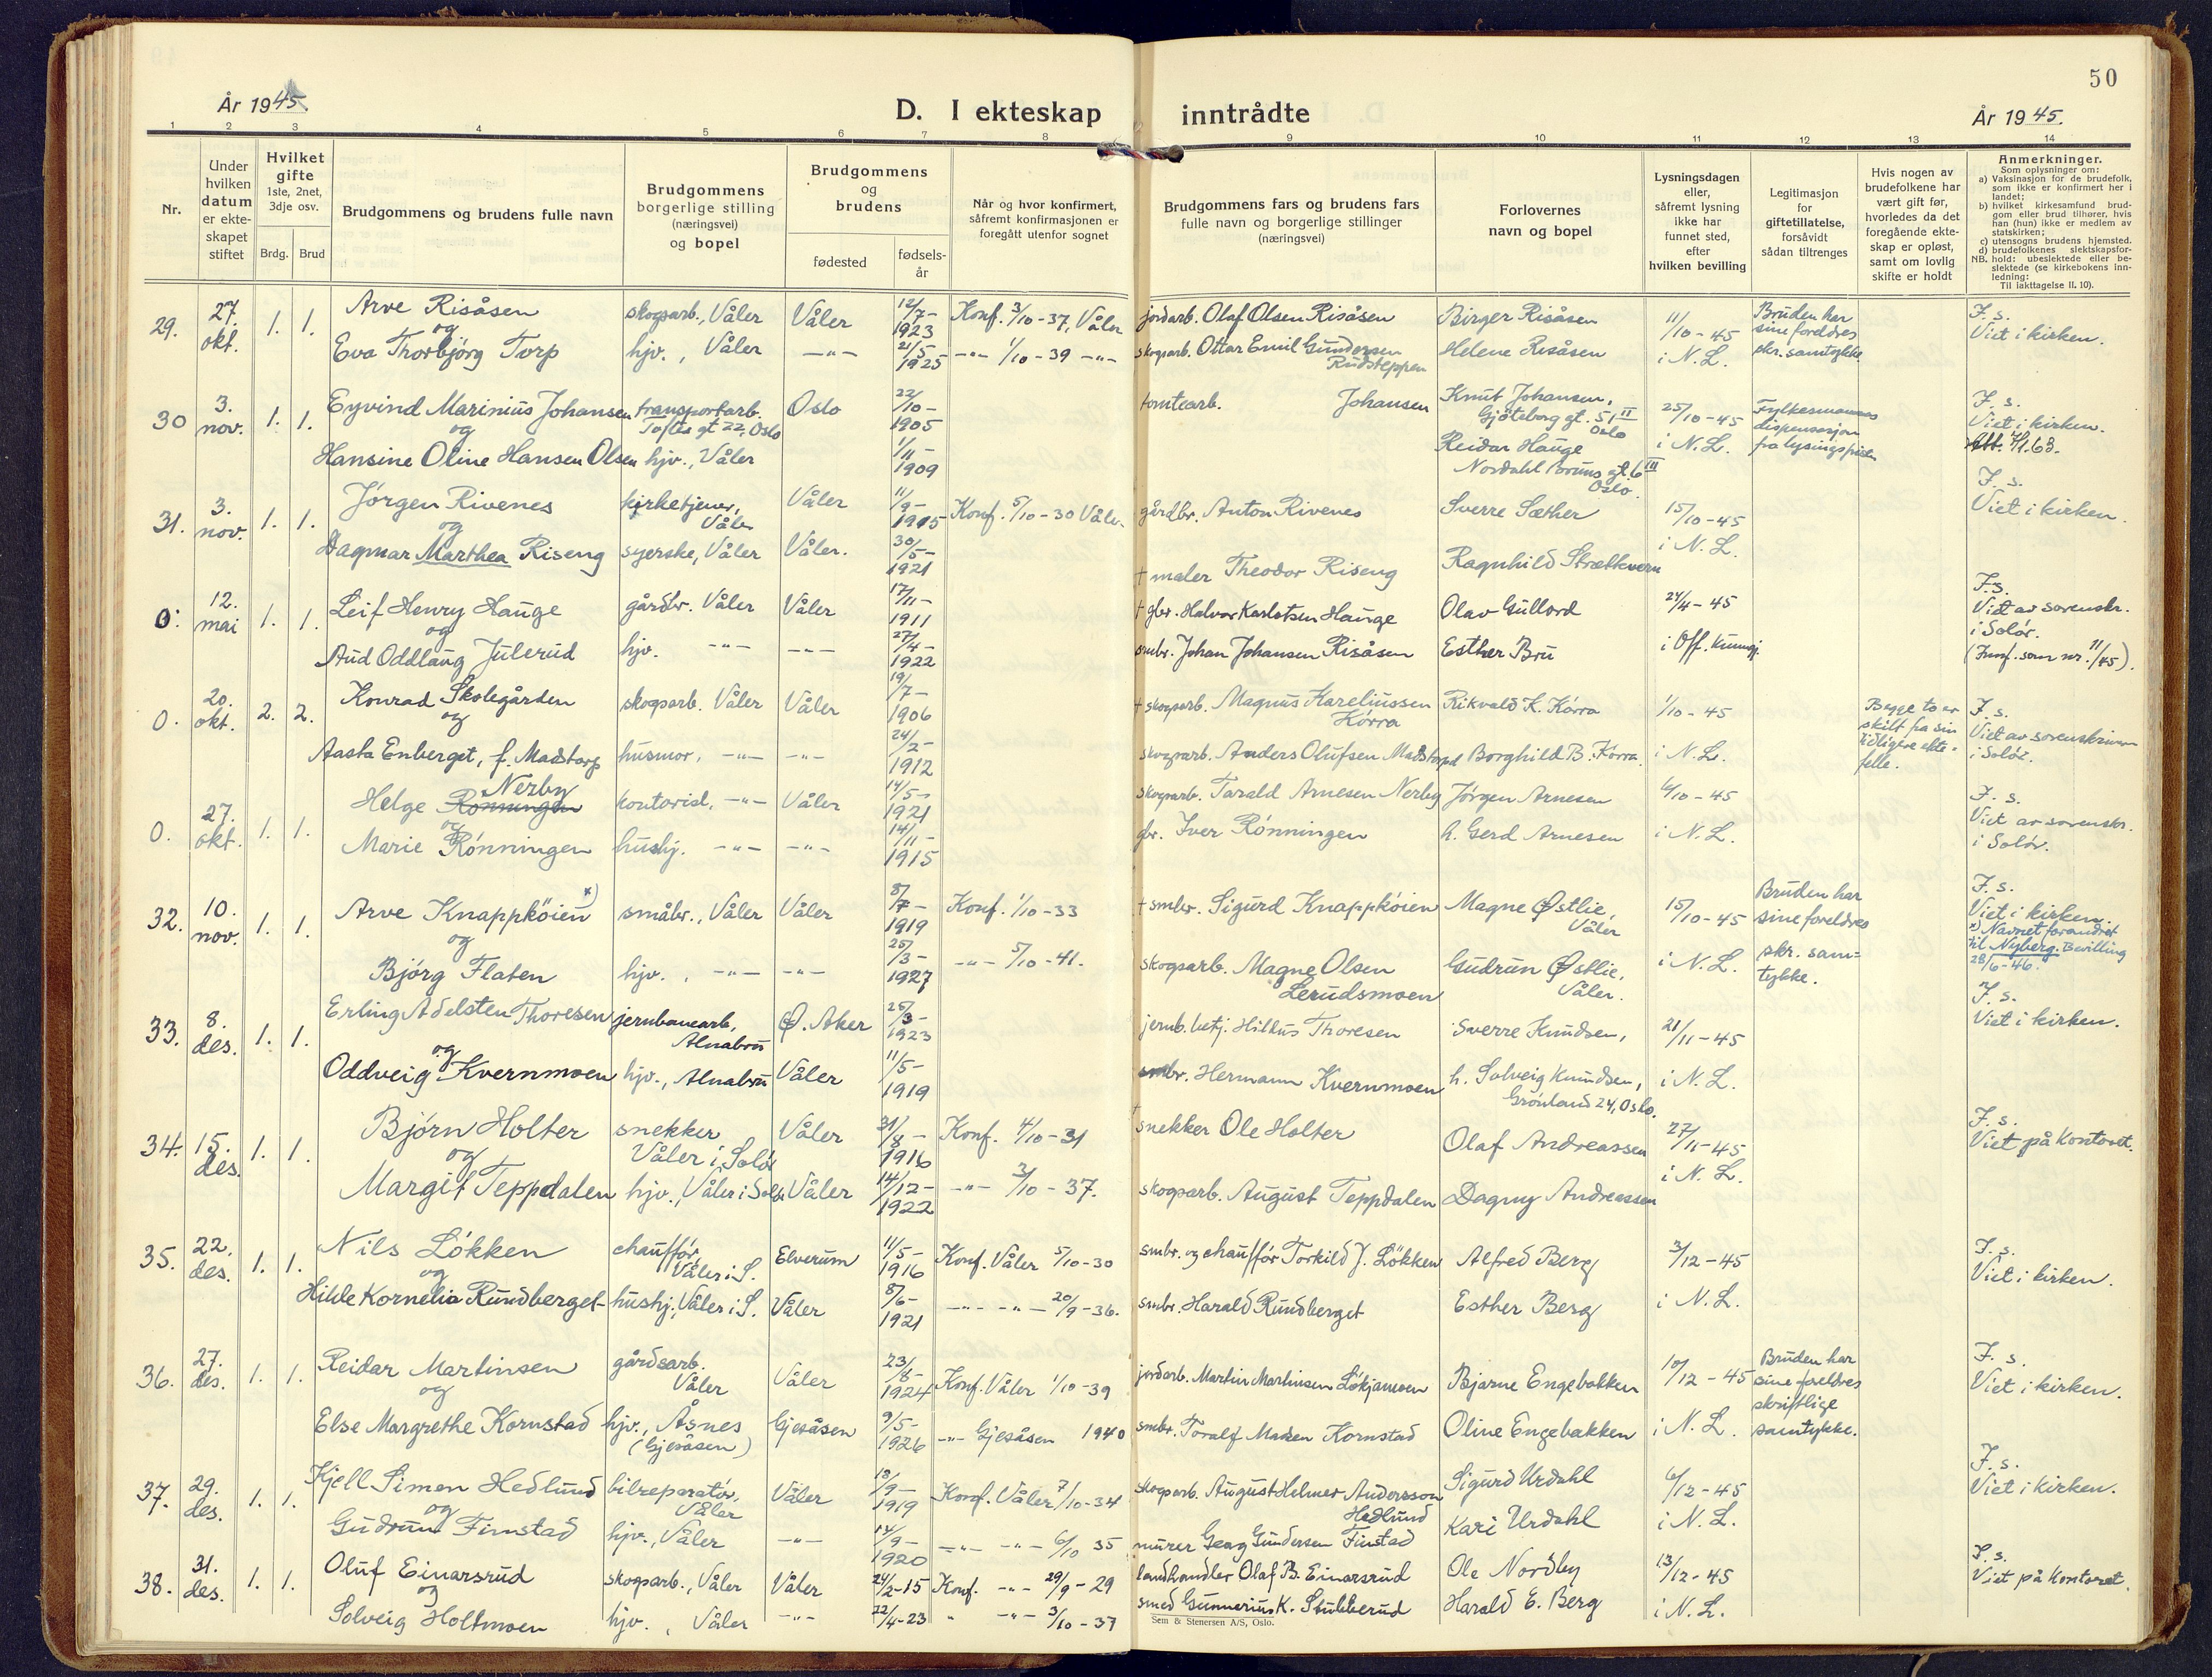 50
År 1945.
D. I ekteskap inntrådte
År 1945.
1 2 3 4 5 6 7 8 9 10 11 12 13 14
Nr.
Under
hvilken
datum
er ekte-
skapet
stiftet
Hvilket
gifte
1ste, 2net,
3dje osv.
Brdg. Brud
Brudgommens og brudens fulle navn
Brudgommens
borgerlige stilling
(næringsvei)
og bopel
Brudgommens
og
brudens
fødested
fødsels-
år
Når og hvor konfirmert,
såfremt konfirmasjonen er
foregått utenfor sognet
Brudgommens fars og brudens fars
fulle navn og borgerlige stillinger
(næringsvei)
Forlovernes
navn og bopel
Lysningsdagen
eller,
såfremt lysning
ikke har
funnet sted,
efter
hvilken bevilling
Legitimasjon
for
giftetillatelse,
forsåvidt
sådan tiltrenges
Hvis nogen av
brudefolkene har
vært gift før,
hvorledes da det
foregående ekte-
skap er opløst,
samt om lovlig
skifte er holdt
Anmerkninger.
Som oplysninger om:
a) Vaksinasjon for de brudefolk,
som ikke er konfirmert her i
landet;
b) hvilket kirkesamfund brud-
gom eller brud tilhører, hvis
han (hun) ikke er medlem av
statskirken;
c) utensogns brudens hjemsted.
d) brudefolkenes slektskapsfor-
NB. hold: ubeslektede eller be-
slektede (se kirkebokens inn-
ledning:
Til iakttagelse II. 10).
29. 27. okt. 1. 1. Arve Risåsen skogsarb., Våler Våler 12/7-1923 Konf. 3/10-37, Våler jordarb. Olaf Olsen Risåsen Birger Risåsen 11/10-45 Bruden har sine foreldres skr. samtykke. F. s. Viet i kirken.
og
Eva Thorbjørg Torp hjv., Våler -"- 21/5 1925 -"- 1/10-39 -"- skogsarb. Ottar Emil Gundersen Rudsteppen Helene Risåsen i N. L.
30 3. nov. 1. 1. Eyvind Marinius Johansen transportarb. Toftes gt 22, Oslo Oslo 22/10-1905 tomtearb. Johansen Knut Johansen, Gjöteborg gt. 51 II Oslo 25/10-45 Fylkesmannens dispensasjon fra lysingsplikten F. s. Viet i kirken. Att. 7/1.63.
og
Hansine Oline Hansen Olsen hjv., Våler 1/11-1909 Reidar Hauge Nordahl Bruns gt. 6 III Oslo. i N. L.
31. 3. nov. 1. 1. Jørgen Rivenes kirketjener, Våler Våler 11/9-1915 Konf. 5/10-30 Våler gårdbr. Anton Rivenes Sverre Sæther 15/10-45 F. s. Viet i kirken.
og
Dagmar Marthea Riseng syerske, Våler Våler. 30/5-1921 † maler Theodor Riseng Ragnhild Strætkvern i N. L.
0. 12. mai 1. 1. Leif Henry Hauge gårdbr. Våler Våler 17/11-1911 † gbr. Halvor Karlstsen Hauge Olav Gullord 24/4-45 F.s. Viet av sorenskr. i Solør. (Innf. som nr. 11/45).
og
Aud Oddlaug Julerud hjv. -"- -"- 27/4-1922 smbr. Johan Johansen Risåsen Esther Bru i Off. kunngj.
0. 20. okt. 2. 2. Konrad Skolegården skogsarb. Våler Våler 19/7-1906 † skogsarb. Magnus Kareliussen Kørra Rikvald K. Kørra 1/10-45 Begge to er skilt fra sin tidligere ektefelle. F. s. Viet av sorenskriveren i Solør.
og
Aasta Enberget, f. Madstorp husmor, -"- -"- 24/2-1912 skogsarb. Anders Olufsen Madstorp Borghild B. Kørra i N. L.
0. 27. okt. 1. 1. Helge Rønningen Nerby kontorist, -"- Våler 14/5-1921 skogsarb. Tarald Arnesen Nerby Jørgen Arnesen 6/10-45 F. s. Viet av sorenskr. i Solør.
og
Marie Rønningen hushj. -"- -"- 14/11 1915 gbr. Iver Rønningen h. Gerd Arnesen i N. L.
32. 10. nov. 1. 1. Arve Knappköien x) småbr., Våler Våler 8/7-1919 Konf. 1/10-33 † smbr. Sigurd Knappköien Magne Østlie, Våler 15/10-45 Bruden har sine foreldres skr. sam=tykke. F. s. Viet i kirken. x) Navnet forandret til Nyberg. Bevilling 28/6-46.
og
Bjørg Flaten hjv., -"- -"- 25/3-1927 -"- 5/10-41. skogsarb. Magne Olsen Lerudsmoen Gudrun Østlie, Våler. i N. L.
33. 8. des. 1. 1. Erling Adelsten Thoresen jernbanearb, Alnabru Ø. Aker 25/3-1923 jernb. betj. Hilkus Thoresen Sverre Knudsen, 21/11-45 F. s. Viet i kirken.
og
Oddveig Kvernmoen hjv., Alnabru Våler 11/5-1919 smbr. Hermann Kvernmoen h. Solveig Knudsen, Grönland 24, Oslo. i N. L.
34. 15. des. 1. 1. Bjørn Holter snekker Våler i Solør Våler 31/8-1916 Konf. 4/10-31 † snekker Ole Holter Olaf Andreassen 27/11-45 F. s. Viet på kontoret.
og
Margit Teppdalen hjv., Våler i Solør Våler 14/12-1922 -"- 3/10-37. skogsarb. August Teppdalen Dagny Andreassen i N. L.
35. 22. des. 1. 1. Nils Løkken chauffør, Våler i S. Elverum 11/5-1916 Konf. Våler 5/10-30 smbr. og chauffør Torkild J. Løkken Alfred Berg 3/12-45 F. s. Viet i kirken.
og
Hilde Kornelia Rundberget hushj., Våler i S. Våler 8/6-1921 -"- -"- 20/9-36. smbr. Harald Rundberget Esther Berg i N. L.
36. 27. des. 1. 1. Reidar Martinsen gårdsarb. Våler Våler 23/8-1924 Konf. Våler 1/10-39 jordarb. Martin Martinsen Løkjamoen Bjarne Engebakken 10/12-45 Bruden har sine foreldres skriftlige samtykke. F. s. Viet i kirken.
og
Else Margrethe Kornstad hjv., Åsnes (Gjesåsen) Gjesåsen 9/5-1926 -"- Gjesåsen 1940 smbr. Toralf Madsen Kornstad Oline Engebakken i N. L.
37. 29. des. 1. 1. Kjell Simen Hedlund bilreparatør, Våler Våler 18/9-1919 Konf. Våler 7/10-34 skogsarb. August Helmer Andersson Hedlund Sigurd Urdahl 6/12-45 F. s. Viet i kirken.
og
Gudrun Finstad hjv., Våler -"- 14/9-1920 -"- -"- 6/10 35 murer Georg Gundersen Finstad Kari Urdahl i N. L.
38. 31. des. 1. 1. Oluf Einarsrud skogsarb., Våler Våler 24/2-15 Konf. -"- 29/9-29 landhandler Olaf B. Einarsrud Ole Nordby 13/12-45 F. s. Viet på kontoret.
og
Solveig Holtmoen hjv., Våler -"- 22/4-23 " -"- 3/10-37 smed Gunnerius K. Stubberud Harald E. Berg i N. L.
Sem & Stenersen A/S, Oslo.